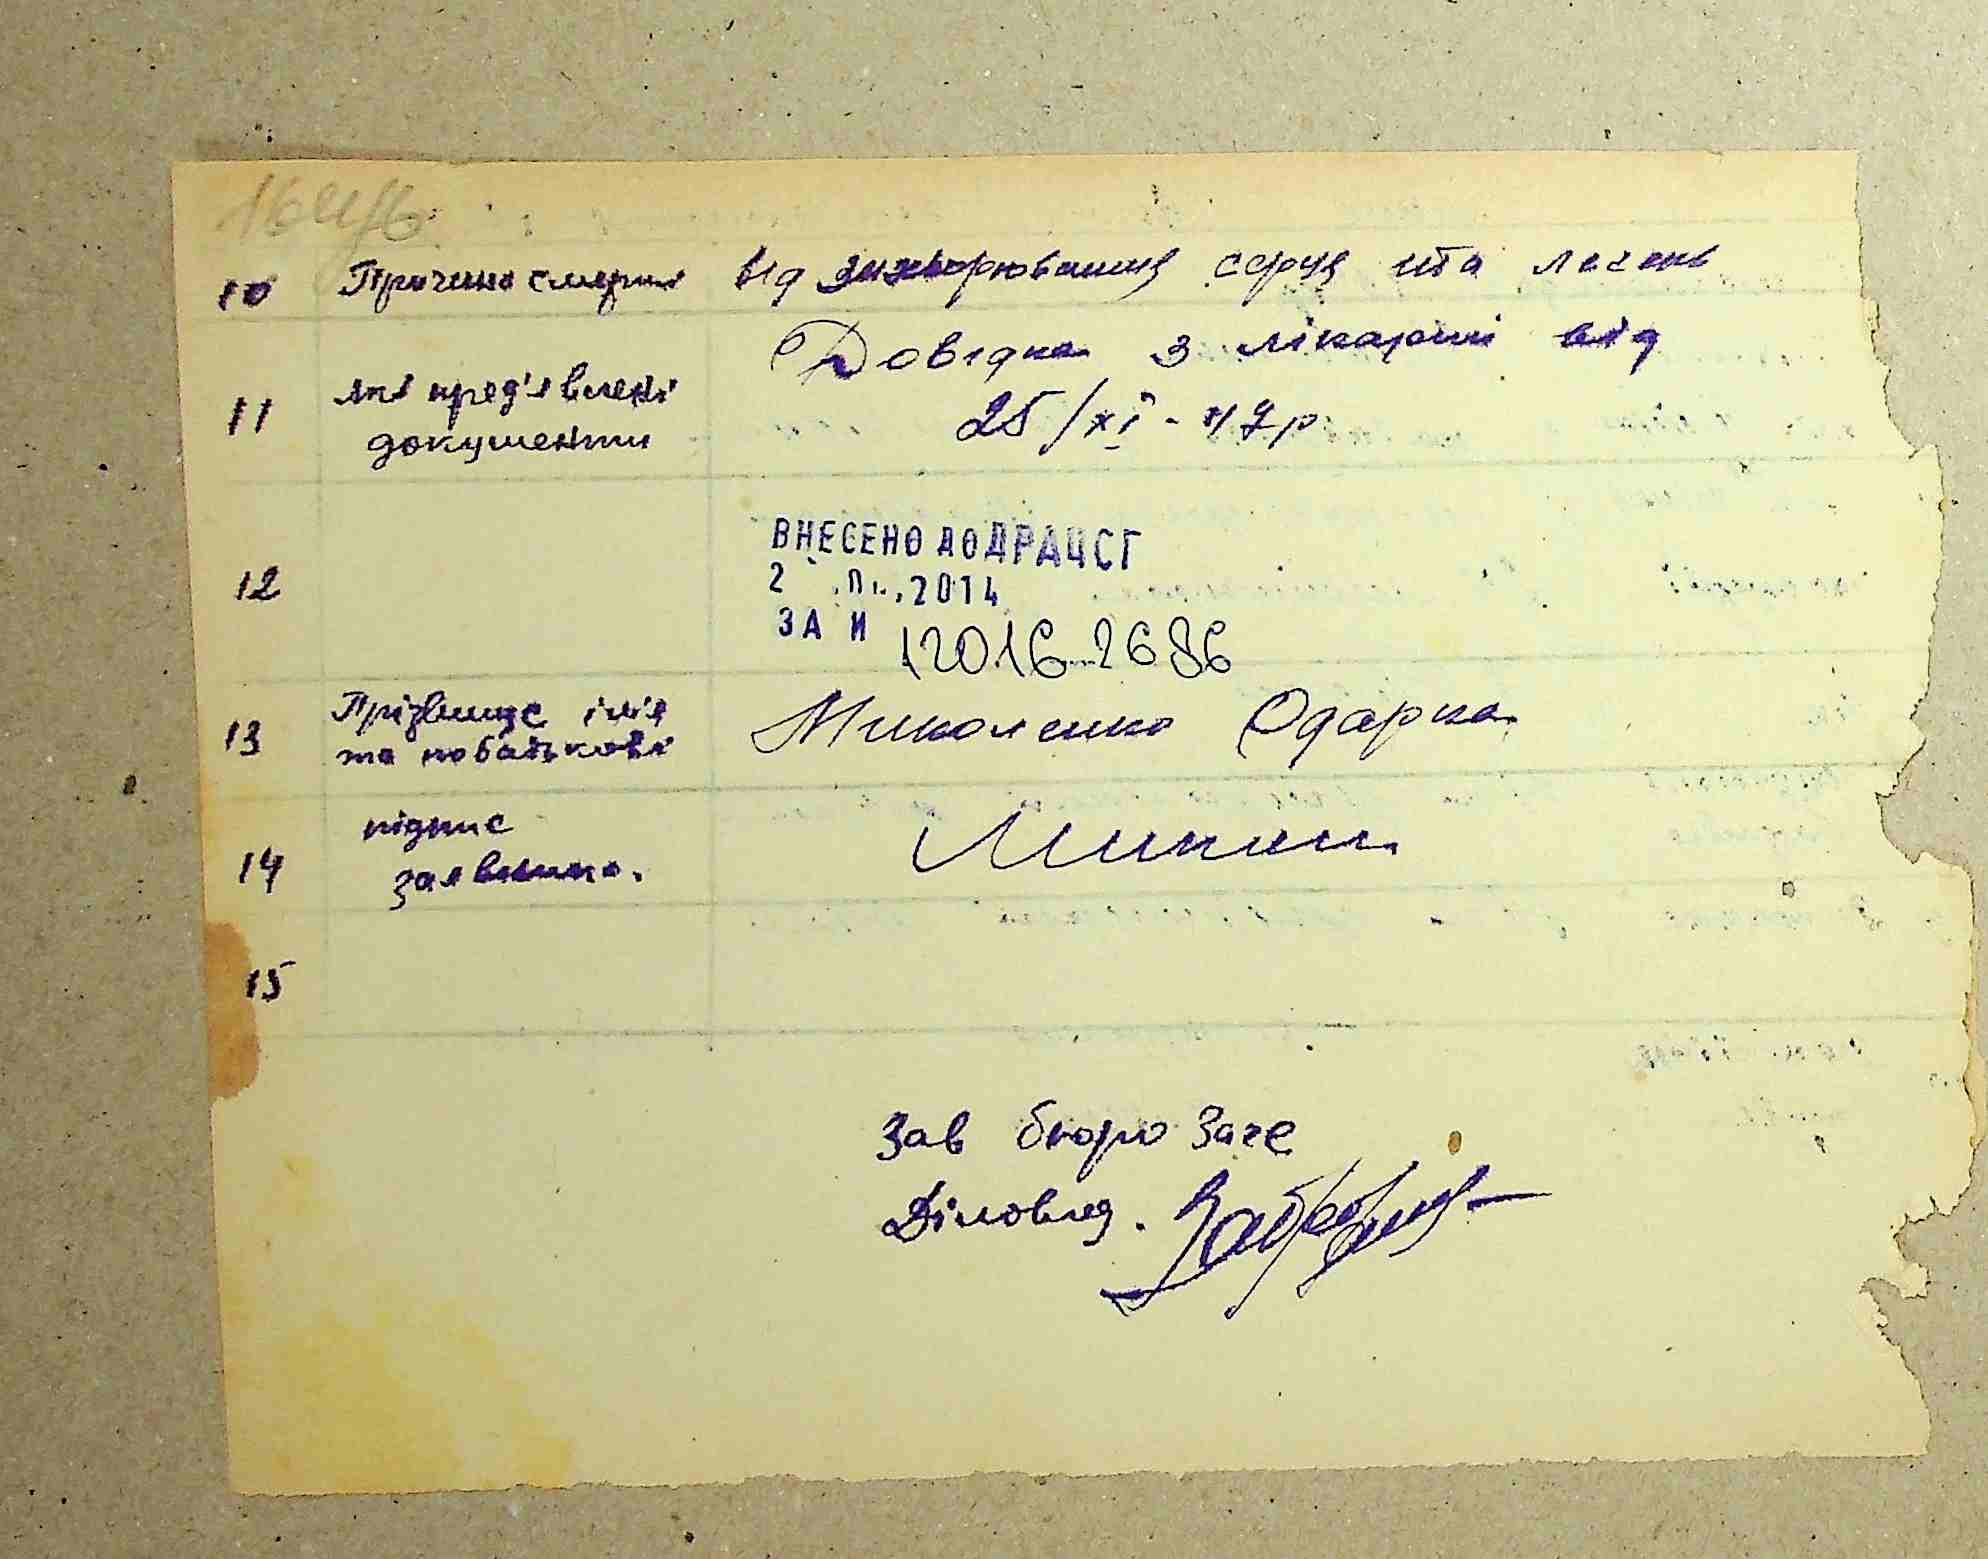 10 Причина смерти від захворювання серця та легень
11 які пред'явлені документи Довідка з лікарні від
25/XI - 47р
12 ВНЕСЕНО ДО ДРАЦСГ
2 2014
ЗА И 12016 2686
13 Прізвище імія та побатькові Миколенко Одарка
14 підпис заявника.
15
Зав бюро Загс
Діловод.